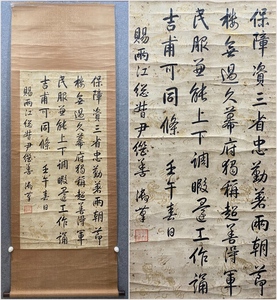 保障資三省忠勤著兩朝節
樓無過久幕府獨稱超善得軍
民服兼能上下調暇還工作誦
吉甫可同條 壬午春日
賜兩江總督尹繼善 御筆
保障資三省忠勤著兩朝節
樓無過久幕府獨稱超善得軍
民服兼能上下調暇還工作誦
吉甫可同條 壬午春日
賜兩江總督尹繼善 御筆